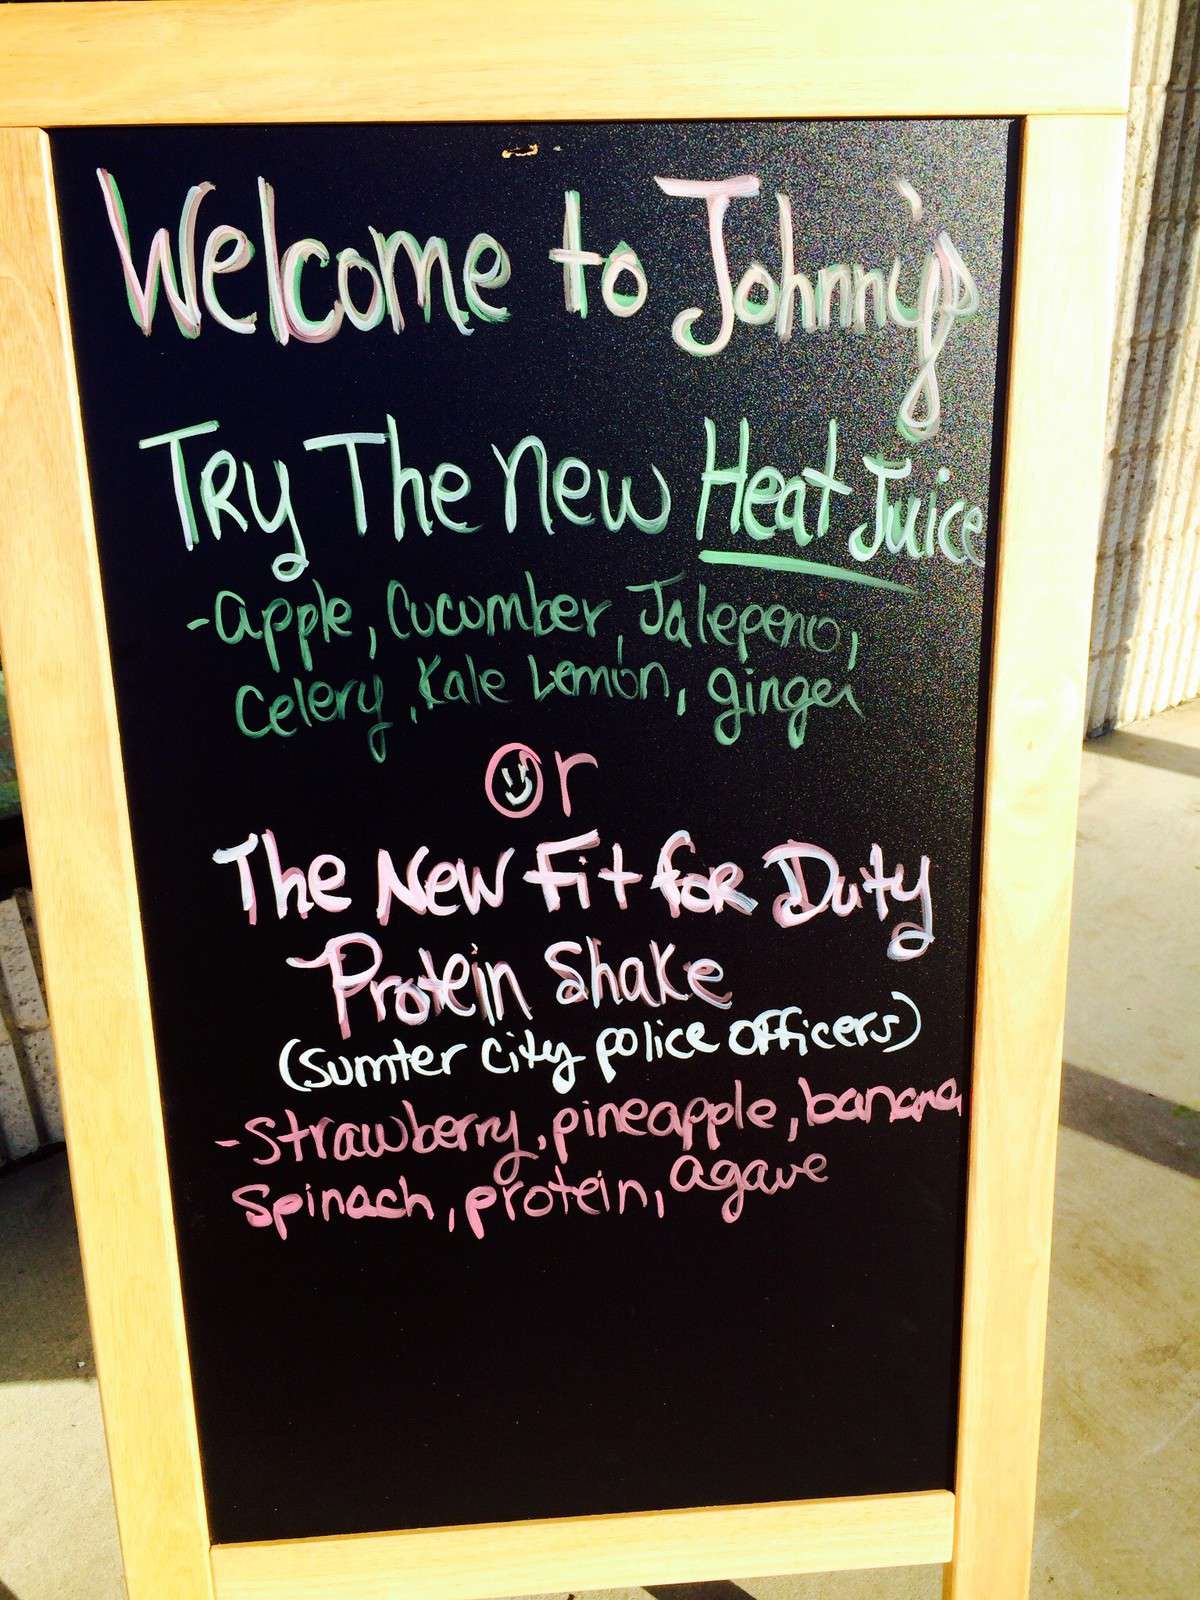 Welcome to Johnny's
Try The new Heat Juice
-apple, Cucumber, Jalepeno,
Celery, Kale Lemon, ginger
Or
The New Fit for Duty
Protein Shake
(Sumter City police officers)
-Strawberry, pineapple, banana,
Spinach, protein, agave